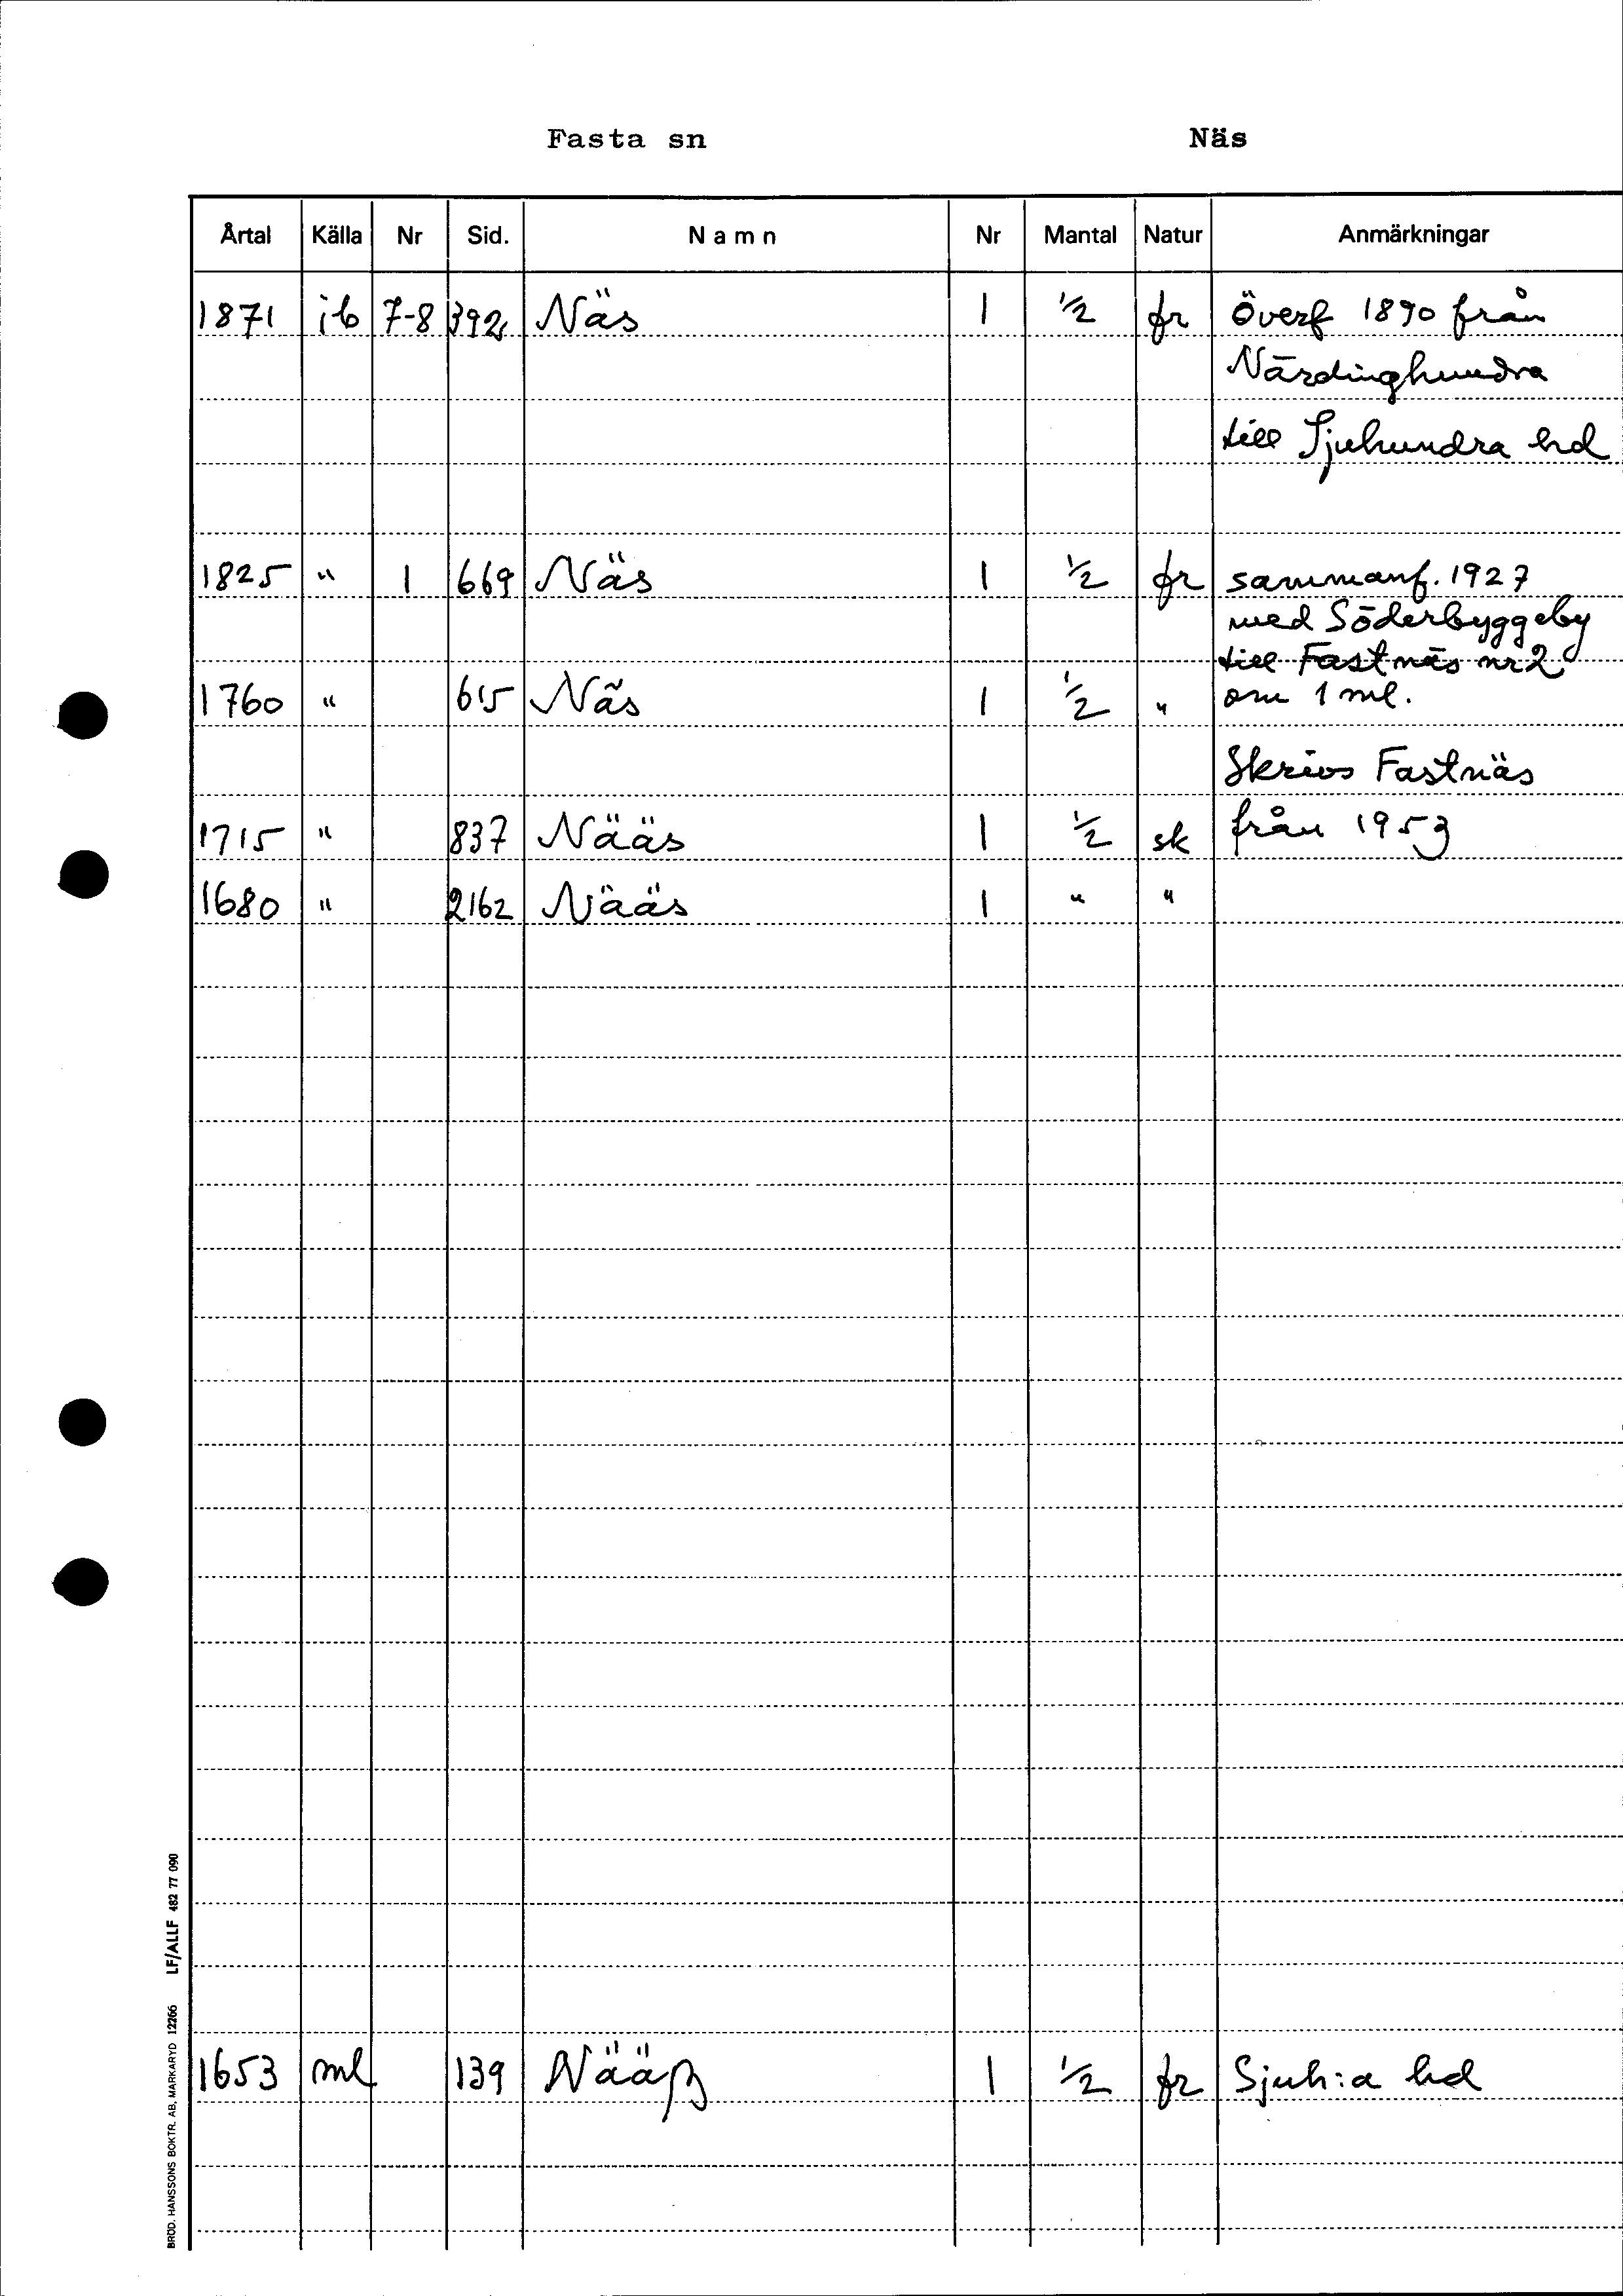 Fasta sn Näs
Årtal Källa Nr Sid. Namn Nr Mantal Natur Anmärkningar
1871 ib 7-8 392 Näs 1 1/2 fr överf 1890 från
Närdinghundra
till Sjuhundra hd
1825 " 1 669 Näs 1 1/2 fr sammanf. 1927
med Söderbyggeby
till Fastnäs nr 2
1760 " 615 Näs 1 1/2 " om 1 ml.
Skrivs Fastnäs
1715 " 837 Nääs 1 1/2 sk från 1953
1680 " 2162 Nääs 1 " "
1653 ml 139 Nääß 1 1/2 fr Sjuh:a hd
BRÖD. HANSSONS BOKTR. AB, MARKARYD 12266 LF/ALLF 482 77 090